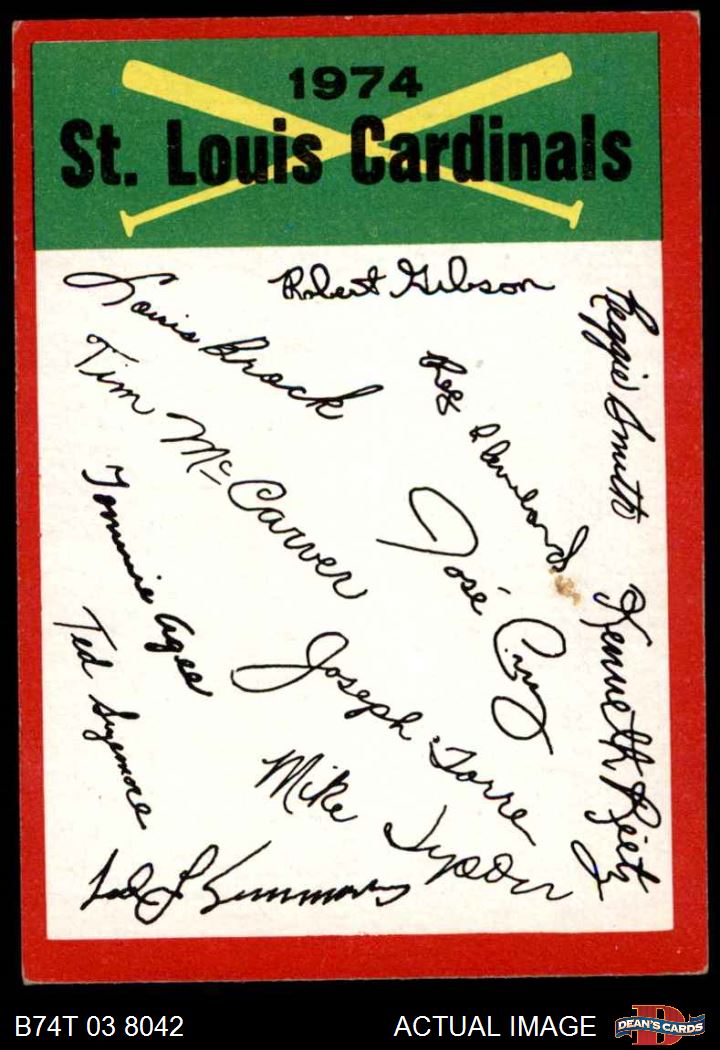 1974
St. Louis Cardinals
Robert Gibson
Louis Brock
Reggie Smith
Tim McCarver
Reg Cleveland
Tommie Agee
José Cruz
Kenneth Reitz
Ted Sizemore
Joseph Torre
Mike Tyson
Ted L Simmons
B74T 03 8042
ACTUAL IMAGE
D
DEAN'S CARDS